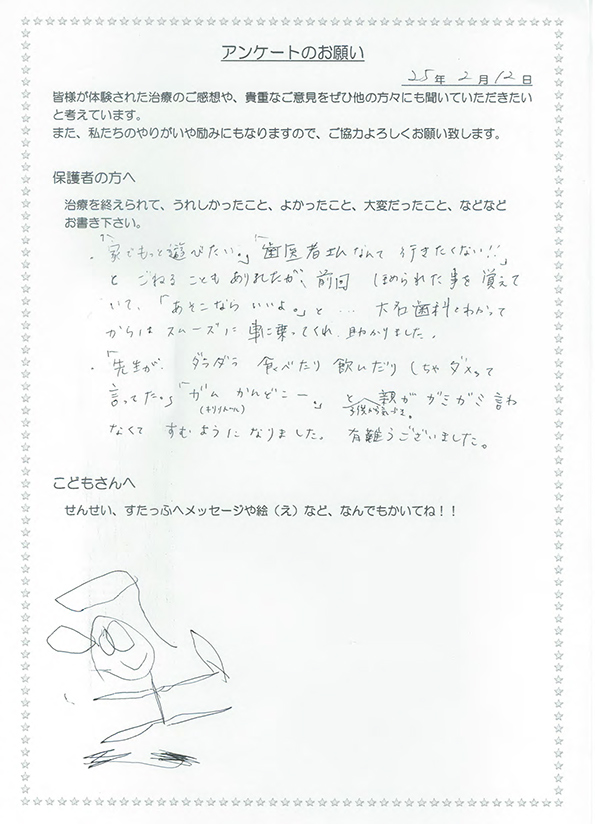 アンケートのお願い
25年 2月 12日
皆様が体験された治療のご感想や、貴重なご意見をぜひ他の方々にも聞いていただきたい
と考えています。
また、私たちのやりがいや励みにもなりますので、ご協力よろしくお願い致します。
保護者の方へ
治療を終えられて、うれしかったこと、よかったこと、大変だったこと、などなど
お書き下さい。
・「家でもっと遊びたい。」「歯医者さんなんて 行きたくない!!」
と ごねることもありましたが、前回 ほめられた事を覚えて
いて、「あそこなら いいよ。」と… 大石歯科とわかって
からは スムーズに 車に乗ってくれ、助かりました。
・「先生が ダラダラ 食べたり 飲んだり しちゃ ダメって
言ってた。」「ガム かんどこー。」 と 親が ガミガミ 言わ
(キシリトール) 子供が気づき
なくて すむようになりました。 有難うございました。
こどもさんへ
せんせい、すたっふへメッセージや絵(え)など、なんでもかいてね!!